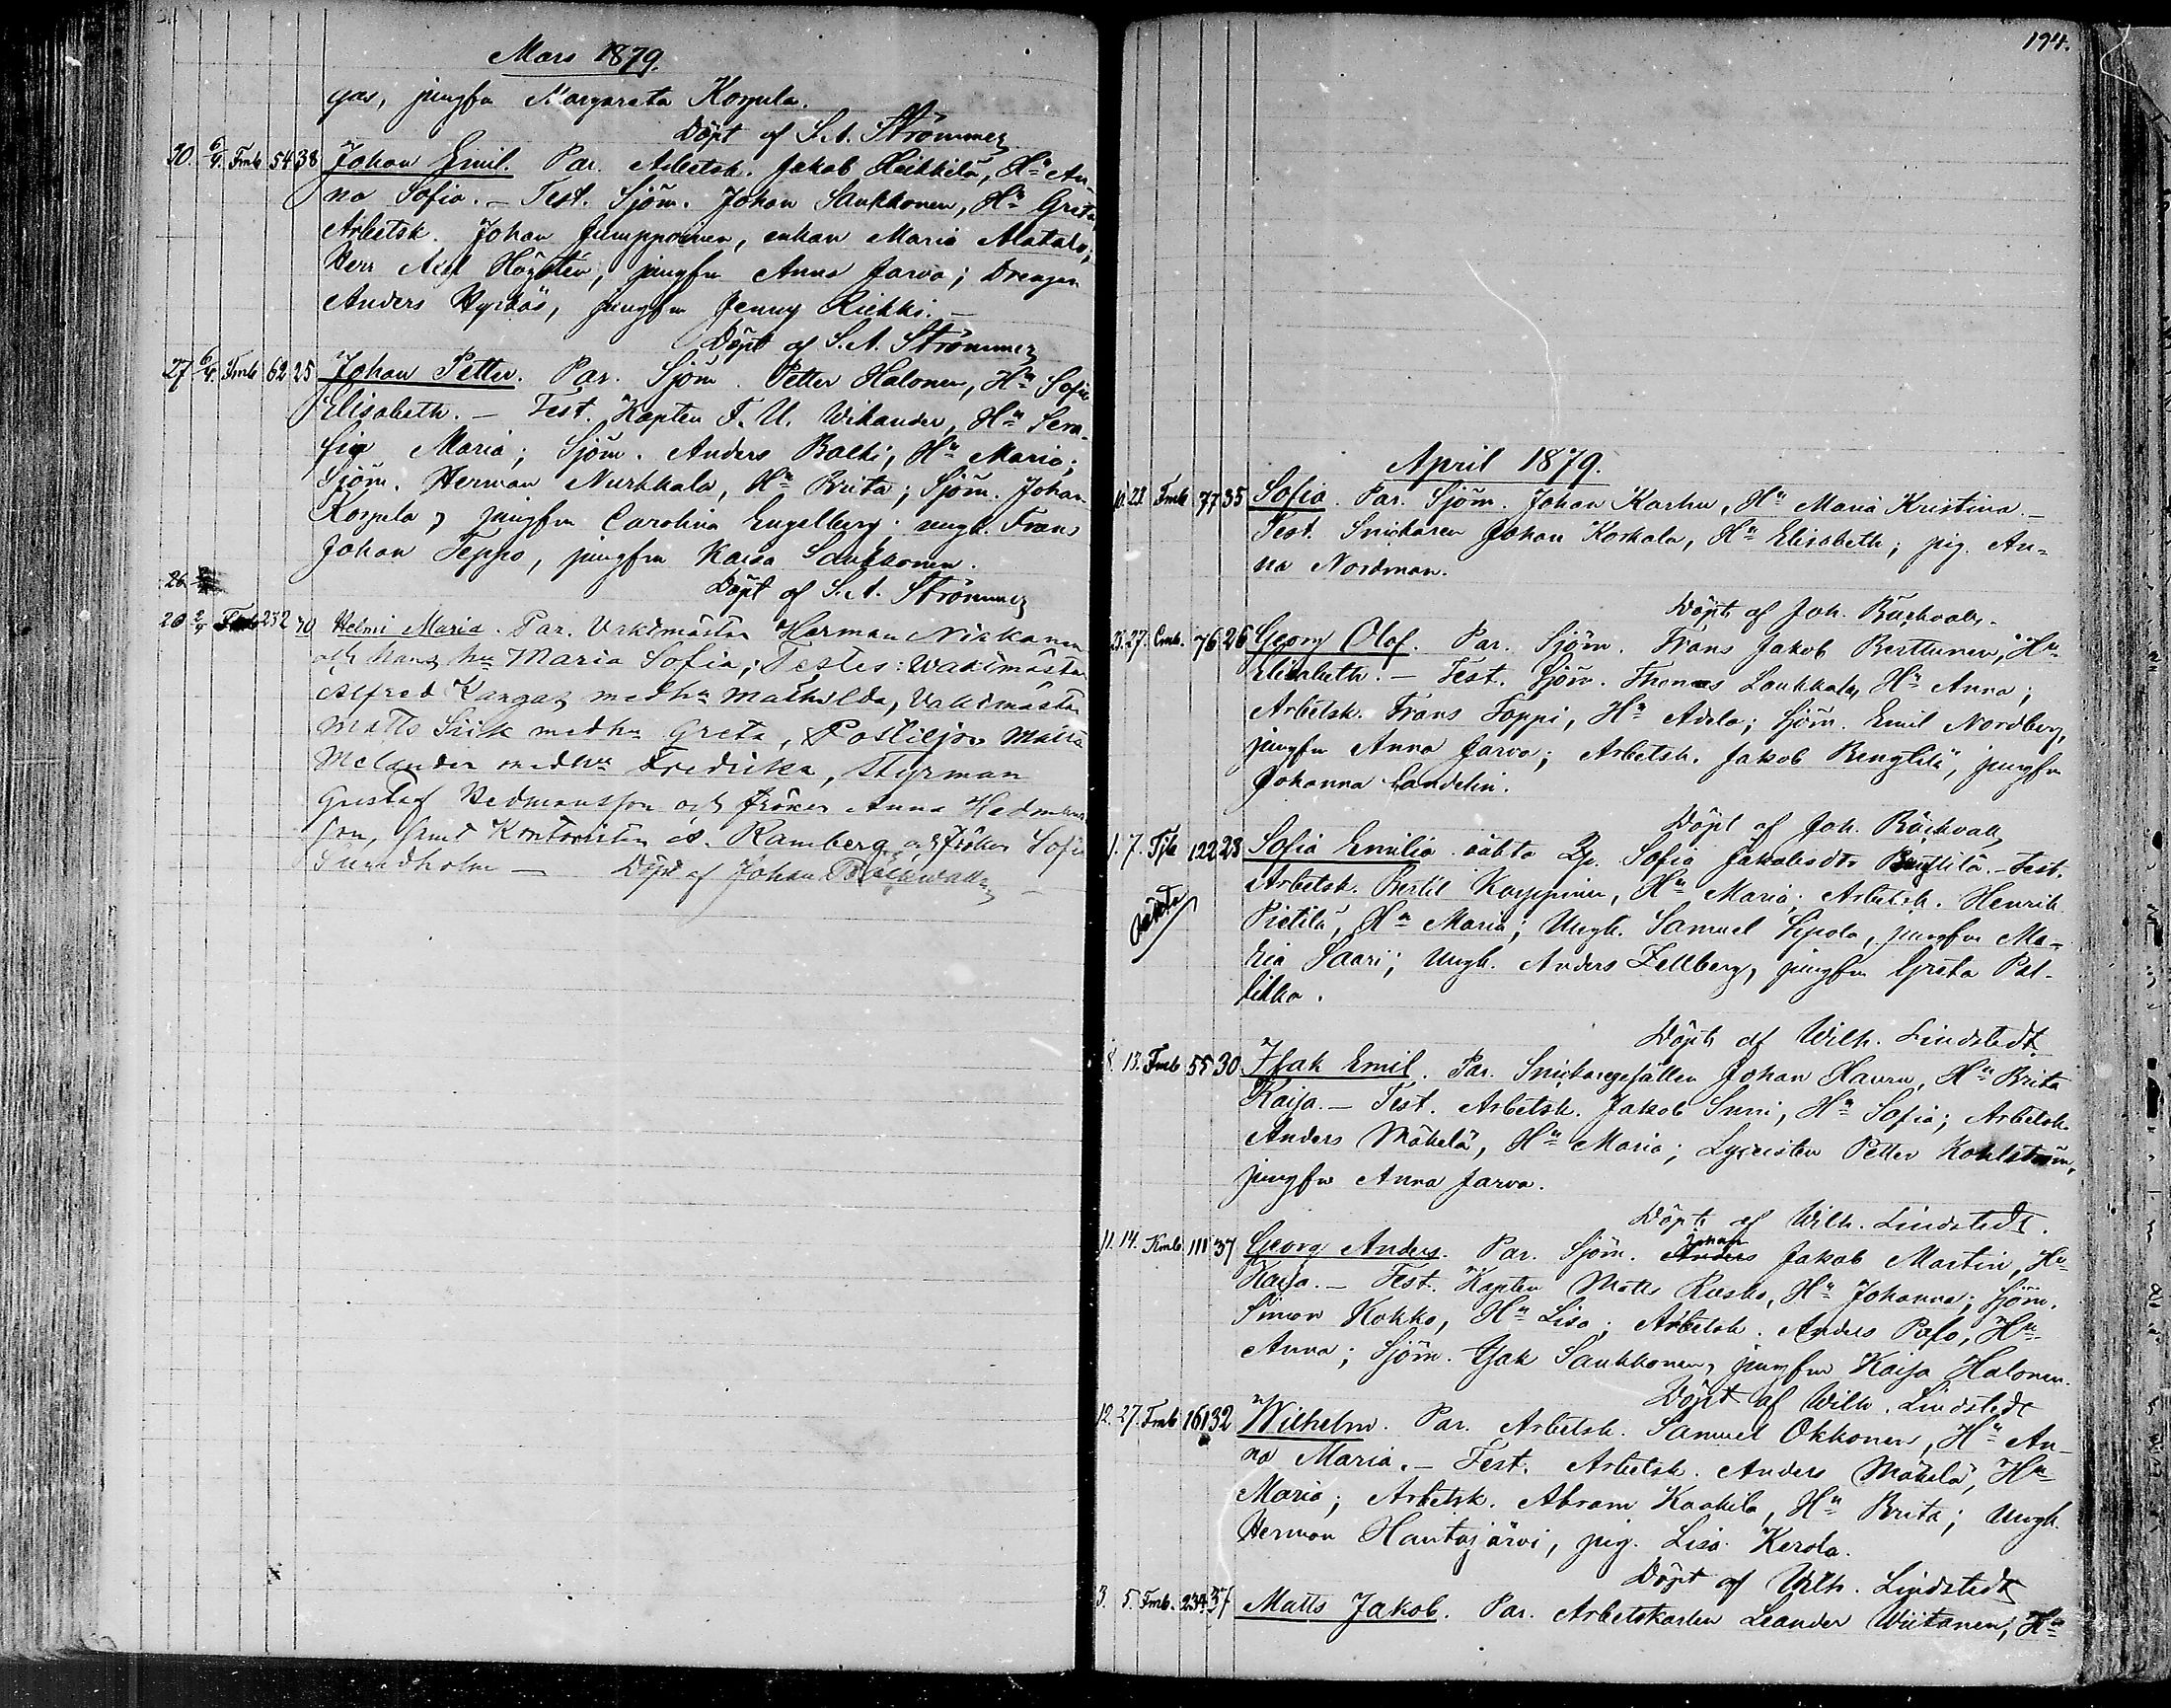 Mars 1879.
gas, jungfru Margareta Korpela.
Döpt af S. A. Strömmer
20. 6/4. Fmb 54 38 Johan Emil. Par. Arbetsk. Jakob Heikkilä, Hu An-
na Sofia. – Test. Sjöm. Johan Saukkonen, Hu Greta,
Arbetsk. Johan Jumppainen, enkan Maria Alatalo;
Herr Högstén, jungfru Anna Jarva; Drengen
Anders Hyrkäs, jungfru Jenny Riekki. –
Döpt af S. A. Strömmer
27 6/4. Fmb 62 25 Johan Petter. Par. Sjöm. Petter Halonen, Hu Sofia
Elisabeth. – Test. Kapten F. U. Wikander, Hu Sera-
fia Maria; Sjöm. Anders Balki, Hu Maria;
Sjöm. Herman Nurkkala, Hu Brita; Sjöm. Johan
Korpela, jungfru Carolina Engelberg; ungk. Frans
Johan Teppo, jungfru Kaisa Saukkonen.
26
Döpt af S. A. Strömmer
20 2/4 Fmb 252 40 Helmi Maria. Par. Vaktmästar Herman Niskanen
och hans hu Maria Sofia; Testes: Waktmästar
Alfred Kangas med hu Mathilda, Vaktmästar
Matts Siik med hu Greta, Postiljon Matts
Melander med hu Fredrika, Styrman
Gustaf Hedmansson och fröken Anna Hedmans
son, samt Kontoristen A. Ramberg och fröken Sofia
Sundholm – Döpt af Johan Bäckwall –
194.
April 1879.
10. 28. Fmb 77 35 Sofia. Par. Sjöm. Johan Karhu, Hu Maria Kristina. –
Test. Snickaren Johan Koskala, Hu Elisabeth; pig. An-
na Nordman.
Döpt af Joh. Bäckvall.
23. 27. Emb. 76 26 Georg Olof. Par. Sjöm. Frans Jakob Berttunen, Hu
Elisabeth. – Test. Sjöm. Thomas Laukkala, Hu Anna;
Arbetsk. Frans Toppi, Hu Adela; Sjöm. Emil Nordberg,
jungfru Anna Jarva; Arbetsk. Jakob Bengtilä, jungfru
Johanna Landelin.
Döpt af Joh. Bäckvall
1. 7. Tjb 122 23 Sofia Emilia oäkta Sofia Jakobsdtr – Test.
oäkta
Arbetsk. Bertil Karppinen, Hu Maria; Arbetsk. Henrik
Pietilä, Hu Maria; Ungk. Samuel Sipola, jungfru Ma-
ria Saari; Ungk. Anders Zellberg, jungfru Greta Pal-
Döpt af Wilh. Lindstedt.
8. 13. Fmb 55 30 Isak Emil. Par. Snickaregesällen Johan Hauru, Hu Brita
Kaija. – Test. Arbetsk. Jakob Suni, Hu Sofia; Arbetsk.
Anders Mäkelä, Hu Maria; Lyceisten Petter Kohlström,
jungfru Anna Jarva.
Döpt af Wilh. Lindstedt.
11. 14. Kmb 111 37 Georg Anders. Par. Sjöm. Johan Jakob Martin, Hu
Kaija. – Test. Kapten Matts Rusko, Hu Johanna; Sjöm.
Simon Kokko, Hu Lisa; Arbetsk. Anders Pafo, Hu
Anna; Sjöm. Isak Saukkonen, jungfru Kaija Halonen.
Döpt af Wilh. Lindstedt
12. 27. Fmb 161 32 Wilhelm. Par. Arbetsk. Samuel Okkonen, Hu An-
na Maria. – Test. Arbetsk. Anders Mäkelä, Hu
Maria; Arbetsk. Abram Kaakila, Hu Brita; Ungk.
Herman Hautajärvi, pig. Lisa Kerola.
Döpt af Wilh. Lindstedt
3. 5. Fmb. 234 37 Matts Jakob. Par. Arbetskarlen Leander Wiitanen, Hu